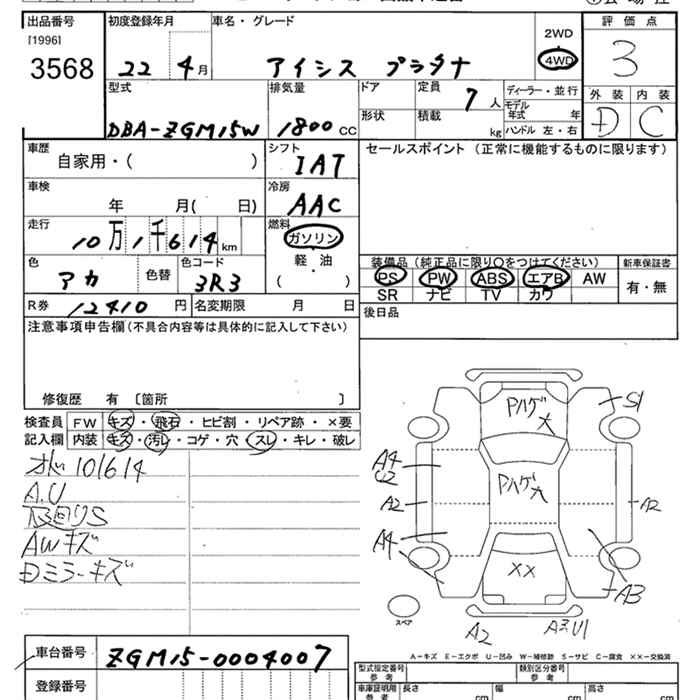 出品番号 初度登録年月 車名・グレード 評価点
[1996] 2WD
3568 22年 4月 アイシス プラタナ 4WD 3
型式 排気量 ドア 定員 7人 ディーラー・並行 外装 内装
形状 積載 kg モデル年式 年
DBA-ZGM15W 1800 CC ハンドル 左・右 D C
車歴 シフト セールスポイント (正常に機能するものに限ります)
自家用・( ) IAT
車検 冷房
年 月( 日) AAC
走行 燃料
10万1千614km ガソリン
色 色替 色コード 軽・油 装備品(純正品に限り○をつけてください) 新車保証書
アカ 3R3 ( ) PS PW ABS エアB AW 有・無
SR ナビ TV カワ
R券 12410円 名変期限 月 日 後日品
注意事項申告欄(不具合内容等は具体的に記入して下さい)
修復歴 有 〔箇所 〕
検査員 FW キズ・飛石・ヒビ割・リペア跡・×要
記入欄 内装 キズ・汚レ・コゲ・穴・スレ・キレ・破レ
101614
A.U
下回りS
AWキズ
Dミラーキズ
Pハゲ大
S1
A4
U2
Pハゲ大
A2
A2
A4
××
A3
スペア
A2
A3 U1
A-キズ E-エクボ U-凹み W-補修跡 S-サビ C-腐食 ××-交換済
車台番号 ZGM15-0004007 型式指定番号 参考 類別区分番号 参考
登録番号 車庫証明用 参考 長さ cm 幅 cm 高さ cm